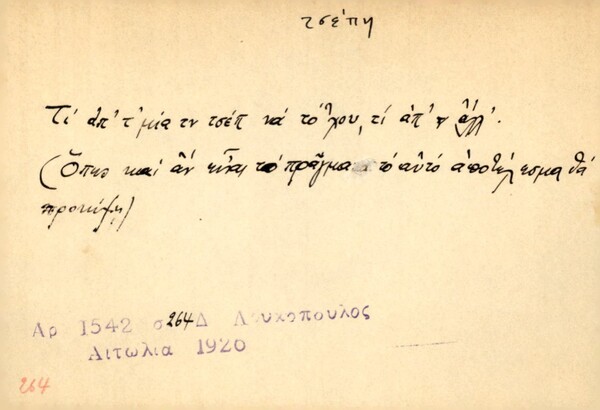 τσέπη
Τί ἀπ' τ' μία τν τσέπ νά τό 'χου, τί ἀπ' τν ἄλλ'.
(Ὅπως καί ἄν εἶναι τό πρᾶγμα τό αὐτό ἀποτέλεσμα θά
προκύψῃ)
Αρ 1542 σ 264 Δ Λουκοπουλος
Αιτωλια 1920
264